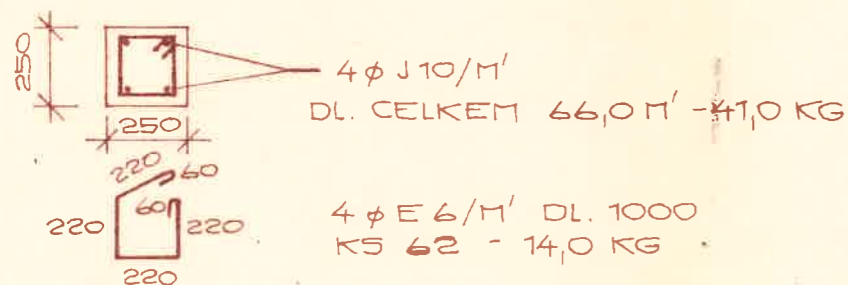 250
4 φ J 10/M'
DL. CELKEM 66,0 M' - 41,0 KG
250
220 60
60
220 220
220
4 φ E 6/M' DL. 1000
KS 62 - 14,0 KG